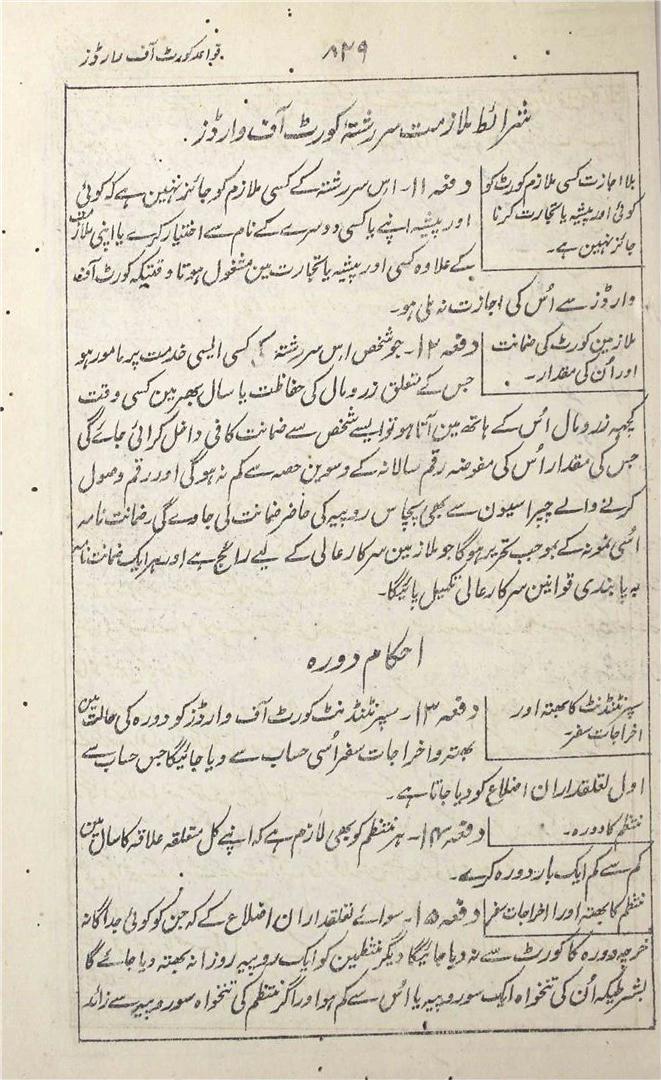 قواعد کورٹ آف وارڈز
۸۲۹
شرائط ملازمت سررشتۂ کورٹ آف وارڈز
بلا اجازت کسی ملازم کورٹ کو
کوئی اور پیشہ یا تجارت کرنا
جائز نہین ہے۔
دفعہ ۱۱۔ اس سررشتہ کے کسی ملازم کو جائز نہین ہے کہ کوئی
اور پیشہ اپنے یا کسی دوسرے کے نام سے اختیار کرے یا اپنی ملازمت
کے علاوہ کسی اور پیشہ یا تجارت مین مشغول ہو تا وقتیکہ کورٹ آف
وارڈز سے اُس کی اجازت نہ ملی ہو۔
ملازمین کورٹ کی ضمانت
اور اُن کی مقدار۔
دفعہ ۱۲۔ جو شخص اس سررشتہ کی کسی ایسی خدمت پر مامور ہو
جس کے متعلق زر و مال کی حفاظت یا سال بھر مین کسی وقت
کچھہ زر و مال اُس کے ہاتھ مین آتا ہو تو ایسے شخص سے ضمانت کافی داخل کرائی جائے گی
جس کی مقدار اُس کی مفوضہ رقم سالانہ کے دسوین حصہ سے کم نہ ہوگی اور رقم وصول
کرنے والے چپراسیون سے بھی پچاس روپیہ کی حاضر ضمانت لی جاوے گی ضمانت نامہ
اُسی نمونہ کے بموجب تحریر ہوگا جو ملازمین سرکار عالی کے لیے رائج ہے اور ہر ایک ضمانت نامہ
بہ پابندی قوانین سرکار عالی تکمیل پائیگا۔
احکام دورہ
سپرنٹنڈنٹ کا بھتہ اور
اخراجات سفر۔
دفعہ ۱۳۔ سپرنٹنڈنٹ کورٹ آف وارڈز کو دورہ کی حالت مین
بھتہ و اخراجات سفر اُسی حساب سے دیا جائیگا جس حساب سے
اول تعلقداران اضلاع کو دیا جاتا ہے۔
منتظم کا دورہ۔
دفعہ ۱۴۔ ہر منتظم کو بھی لازم ہے کہ اپنے کل متعلقہ علاقہ کا سال مین
کم سے کم ایک بار دورہ کرے۔
منتظم کا بھتہ اور اخراجات سفر
دفعہ ۱۵۔ سوائے تعلقداران اضلاع کے کہ جن کو کوئی جداگانہ
خرچہ دورہ کا کورٹ سے نہ دیا جائیگا دیگر منتظمین کو ایک روپیہ روزانہ بھتہ دیا جائے گا
بشرطیکہ اُن کی تنخواہ ایک سو روپیہ یا اُس سے کم ہو اور اگر منتظم کی تنخواہ سو روپیہ سے زائد